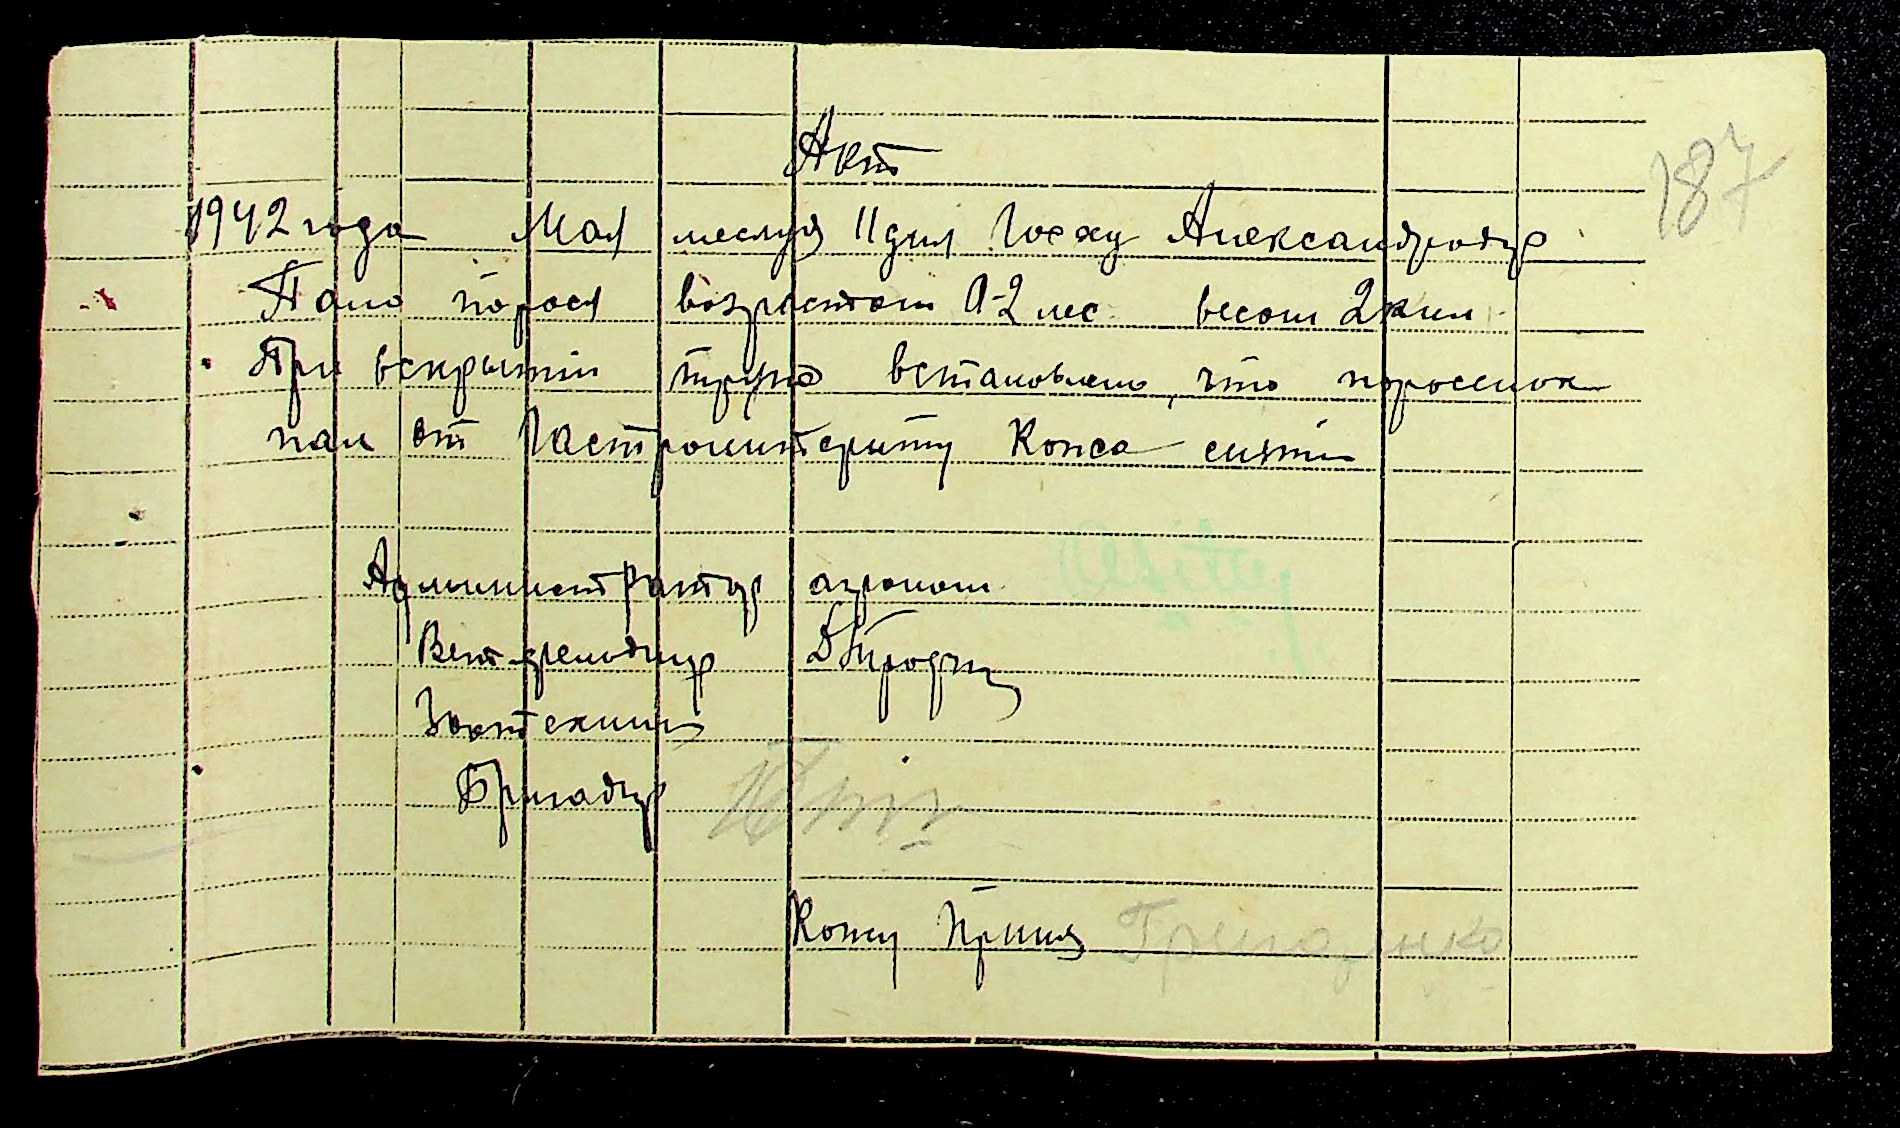 187
Акт
1942 года Мая месяця 11 дня Госху Александродар
Пало порося возрастом 0-2 мес весом 2 кил
При вскрытии трупа встановлено, что поросенок
пал от Гастроинтериту Кожа снята
Администратор агроном
Ветфельдшер
Зоотехник
Бригадир
Кожу принял